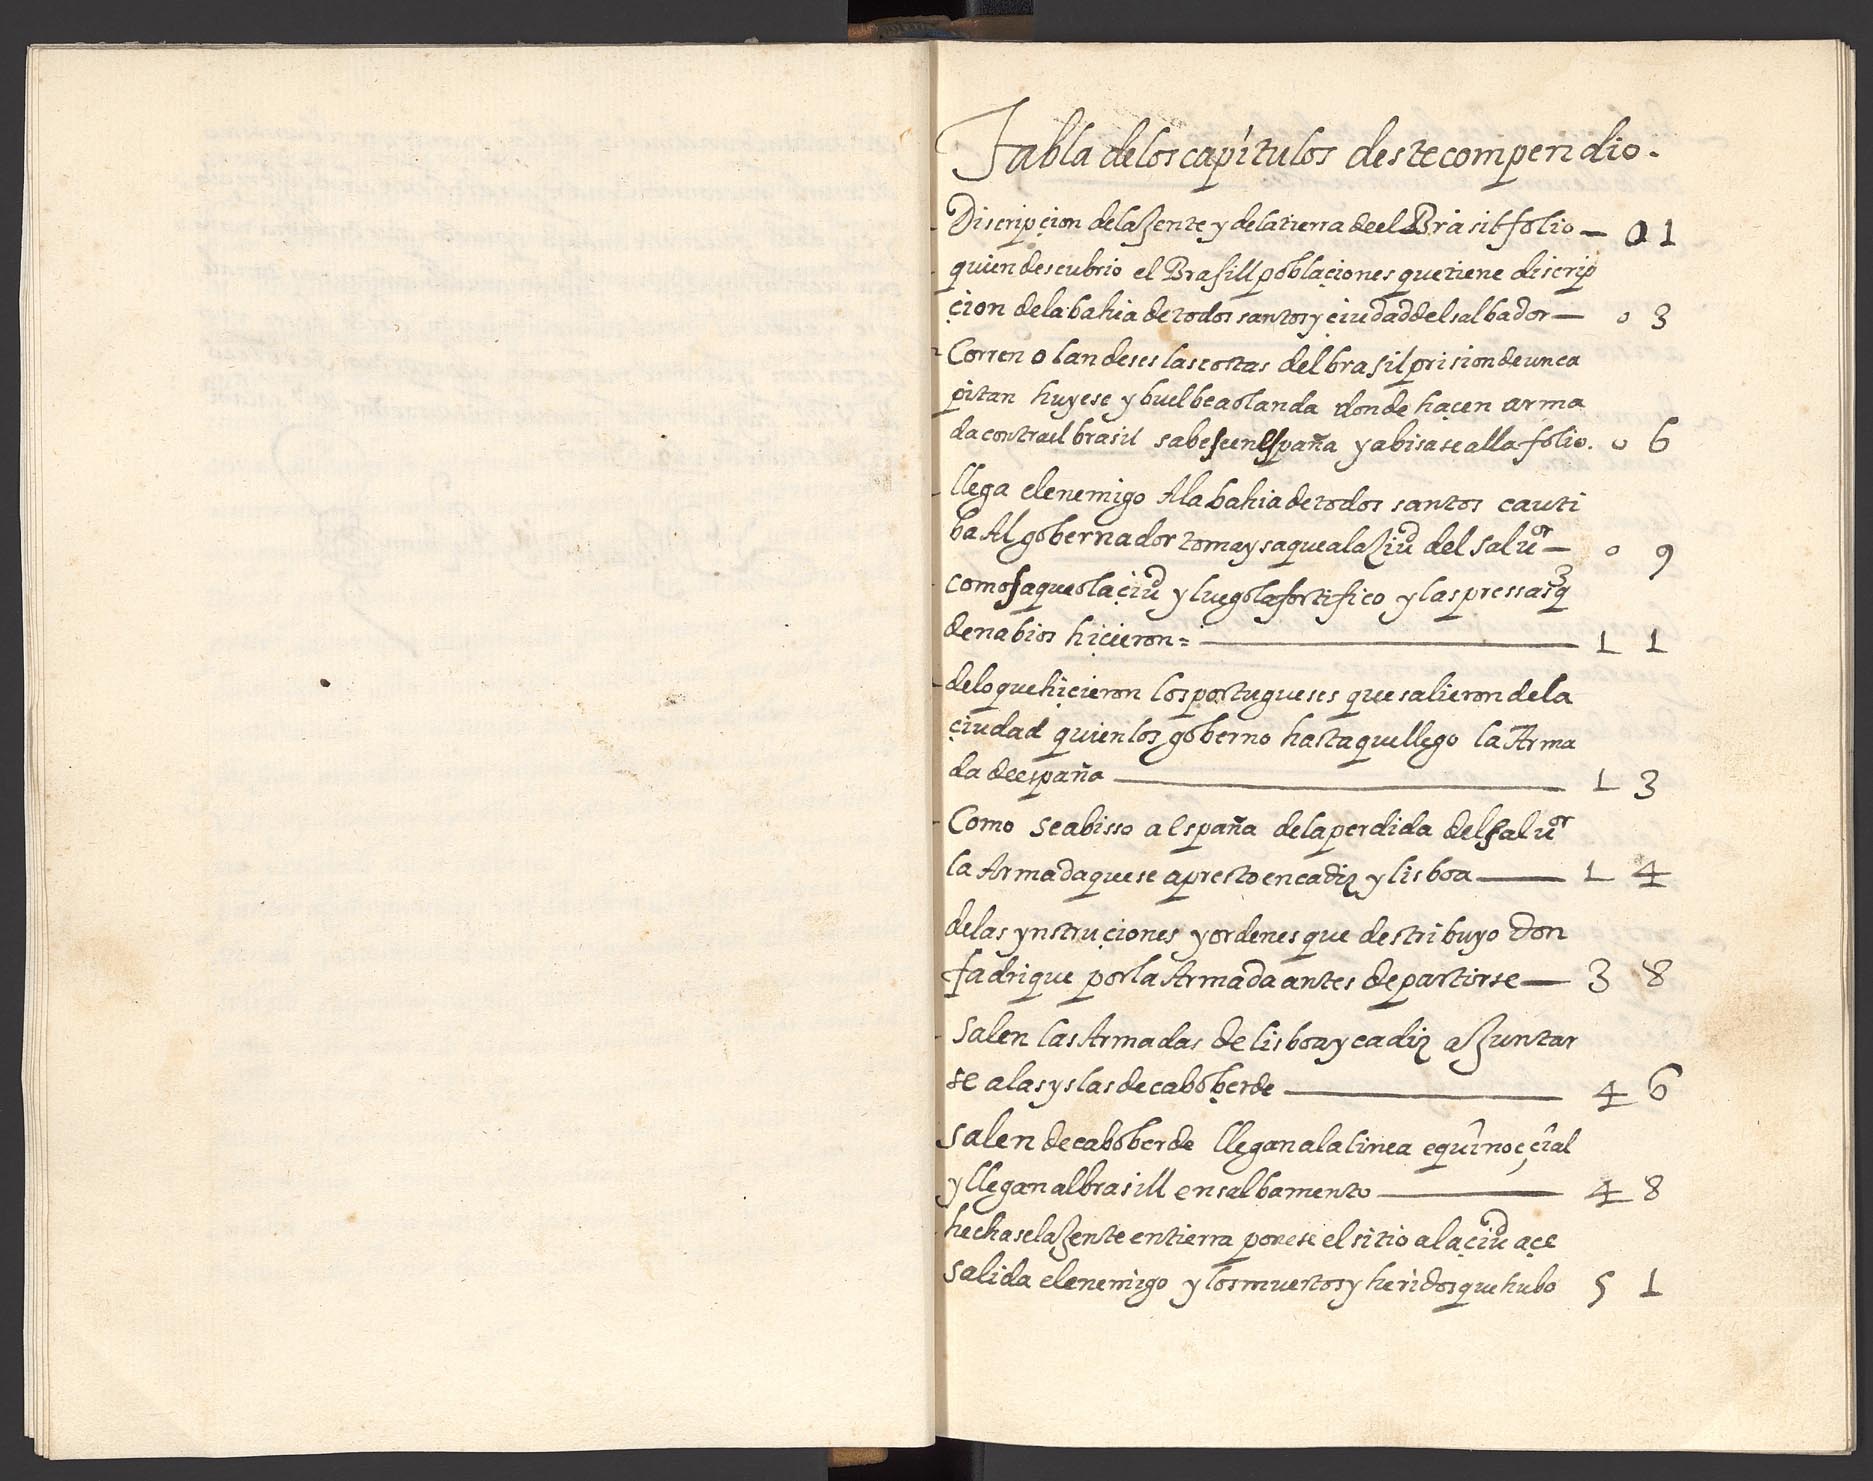 Tabla de los capitulos deste compendio.
Discripçion de la Zente y de la tierra de el Brasil folio — 0 1
quien descubrio el Brasill poblaçiones que tiene discrip
çion de la bahia de todos santos y çiudad del salbador — 0 3
Corren olandeses las costas del brasil prision de un ca
pitan huyese y buelbe a olanda donde haçen arma
da contra el brasil sabese en españa y abisase alla folio. 0 6
llega el enemigo A la bahia de todos santos cauti
ba Al gobernador toma y saquea la Ziud del saluor — 0 9
como saqueo la çiud y luego la fortifico y las pressas q
de nabios hiçieron = — 1 1
de lo que hiçieron los portugueses que salieron de la
çiudad quien los goberno hasta que llego la Arma
da de españa — 1 3
Como se abisso a españa de la perdida del saluor
la Armada que se apresto en cadiz y lisboa — 1 4
de las ynstruçiones y ordenes que destribuyo don
fadrique por la Armada antes de partirse — 3 8
salen las Armadas de lisboa y cadiz a Zuntar
se a las yslas de cabo berde — 4 6
salen de cabo berde llegan a la linea equinocçial
y llegan al brasill en salbamento — 4 8
hechase la Zente en tierra ponese el sitio a la çiud açe
salida el enemigo y los muertos y heridos que hubo 5 1